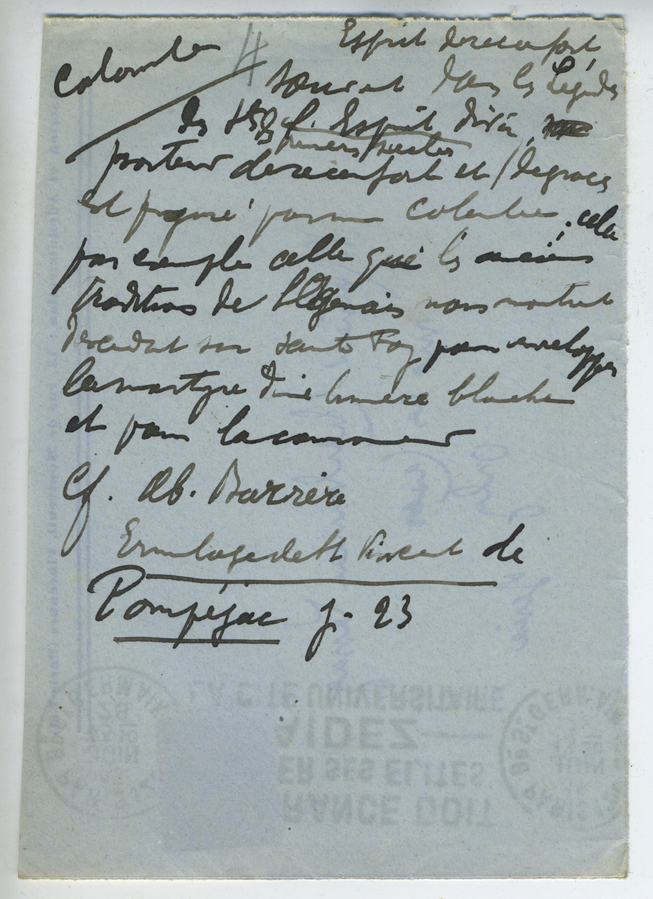 Colombe 4 Esprit de réconfort
souvent dans les légendes
des
premiers siècles
l'Esprit divin,
porteur de réconfort et de grâces
est figuré par une colombe. celle
par exemple celle que les anciennes
traditions de l'Agenais nous montrent
descendant sur sainte Foy pour envelopper
la martyre d'une lumière blanche
et pour la couronner
Cf. Ab. Barrère
Ermitage de St Vincent de
Pompéjac p. 23
LA CITE UNIVERSITAIRE
AIDEZ
ER SES ELITES
RANCE DOIT